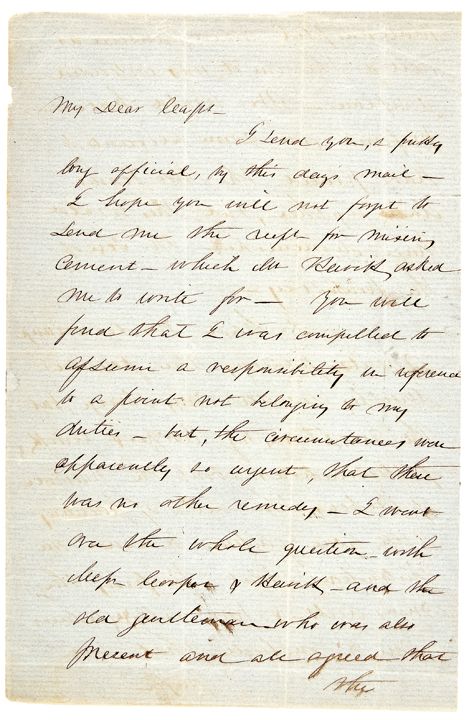 My Dear Capt –
I send you, a pretty
long official, by this day's mail –
I hope you will not forget to
send me the rect for mixing
cement – which Mr asked
me to write for – You will
find that I was compelled to
assume a responsibility in reference
to a point not belonging to my
duties – but, the circumstances were
apparently so urgent, that there
was no other remedy – I went
over the whole question with
Messr Cooper & – and the
old gentleman who was also
present and all agreed that
the